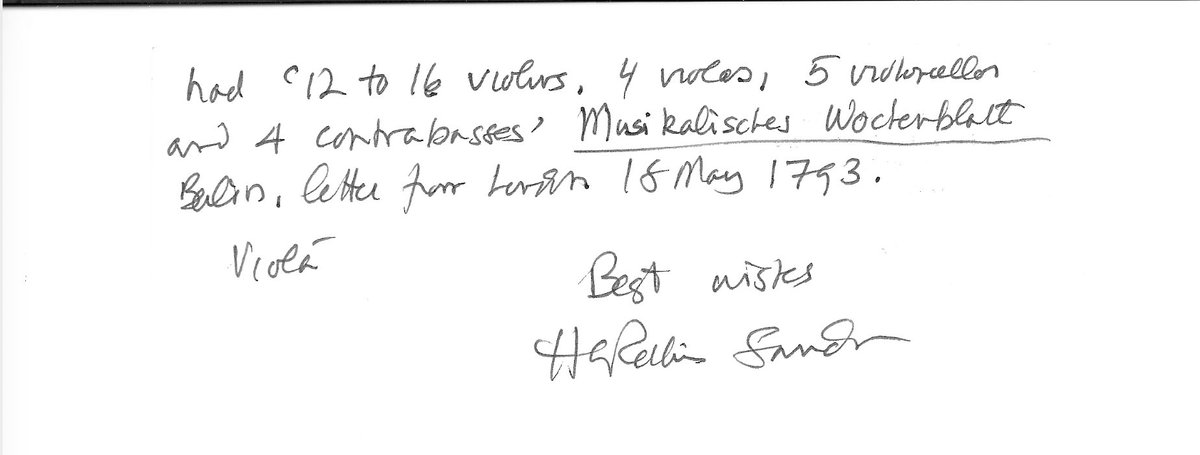 had '12 to 16 violins, 4 violas, 5 violoncellos
and 4 contrabasses' Musikalisches Wochenblatt
Berlin, letter from London 18 May 1793.
Violà
Best wishes
H C Robbins Landon